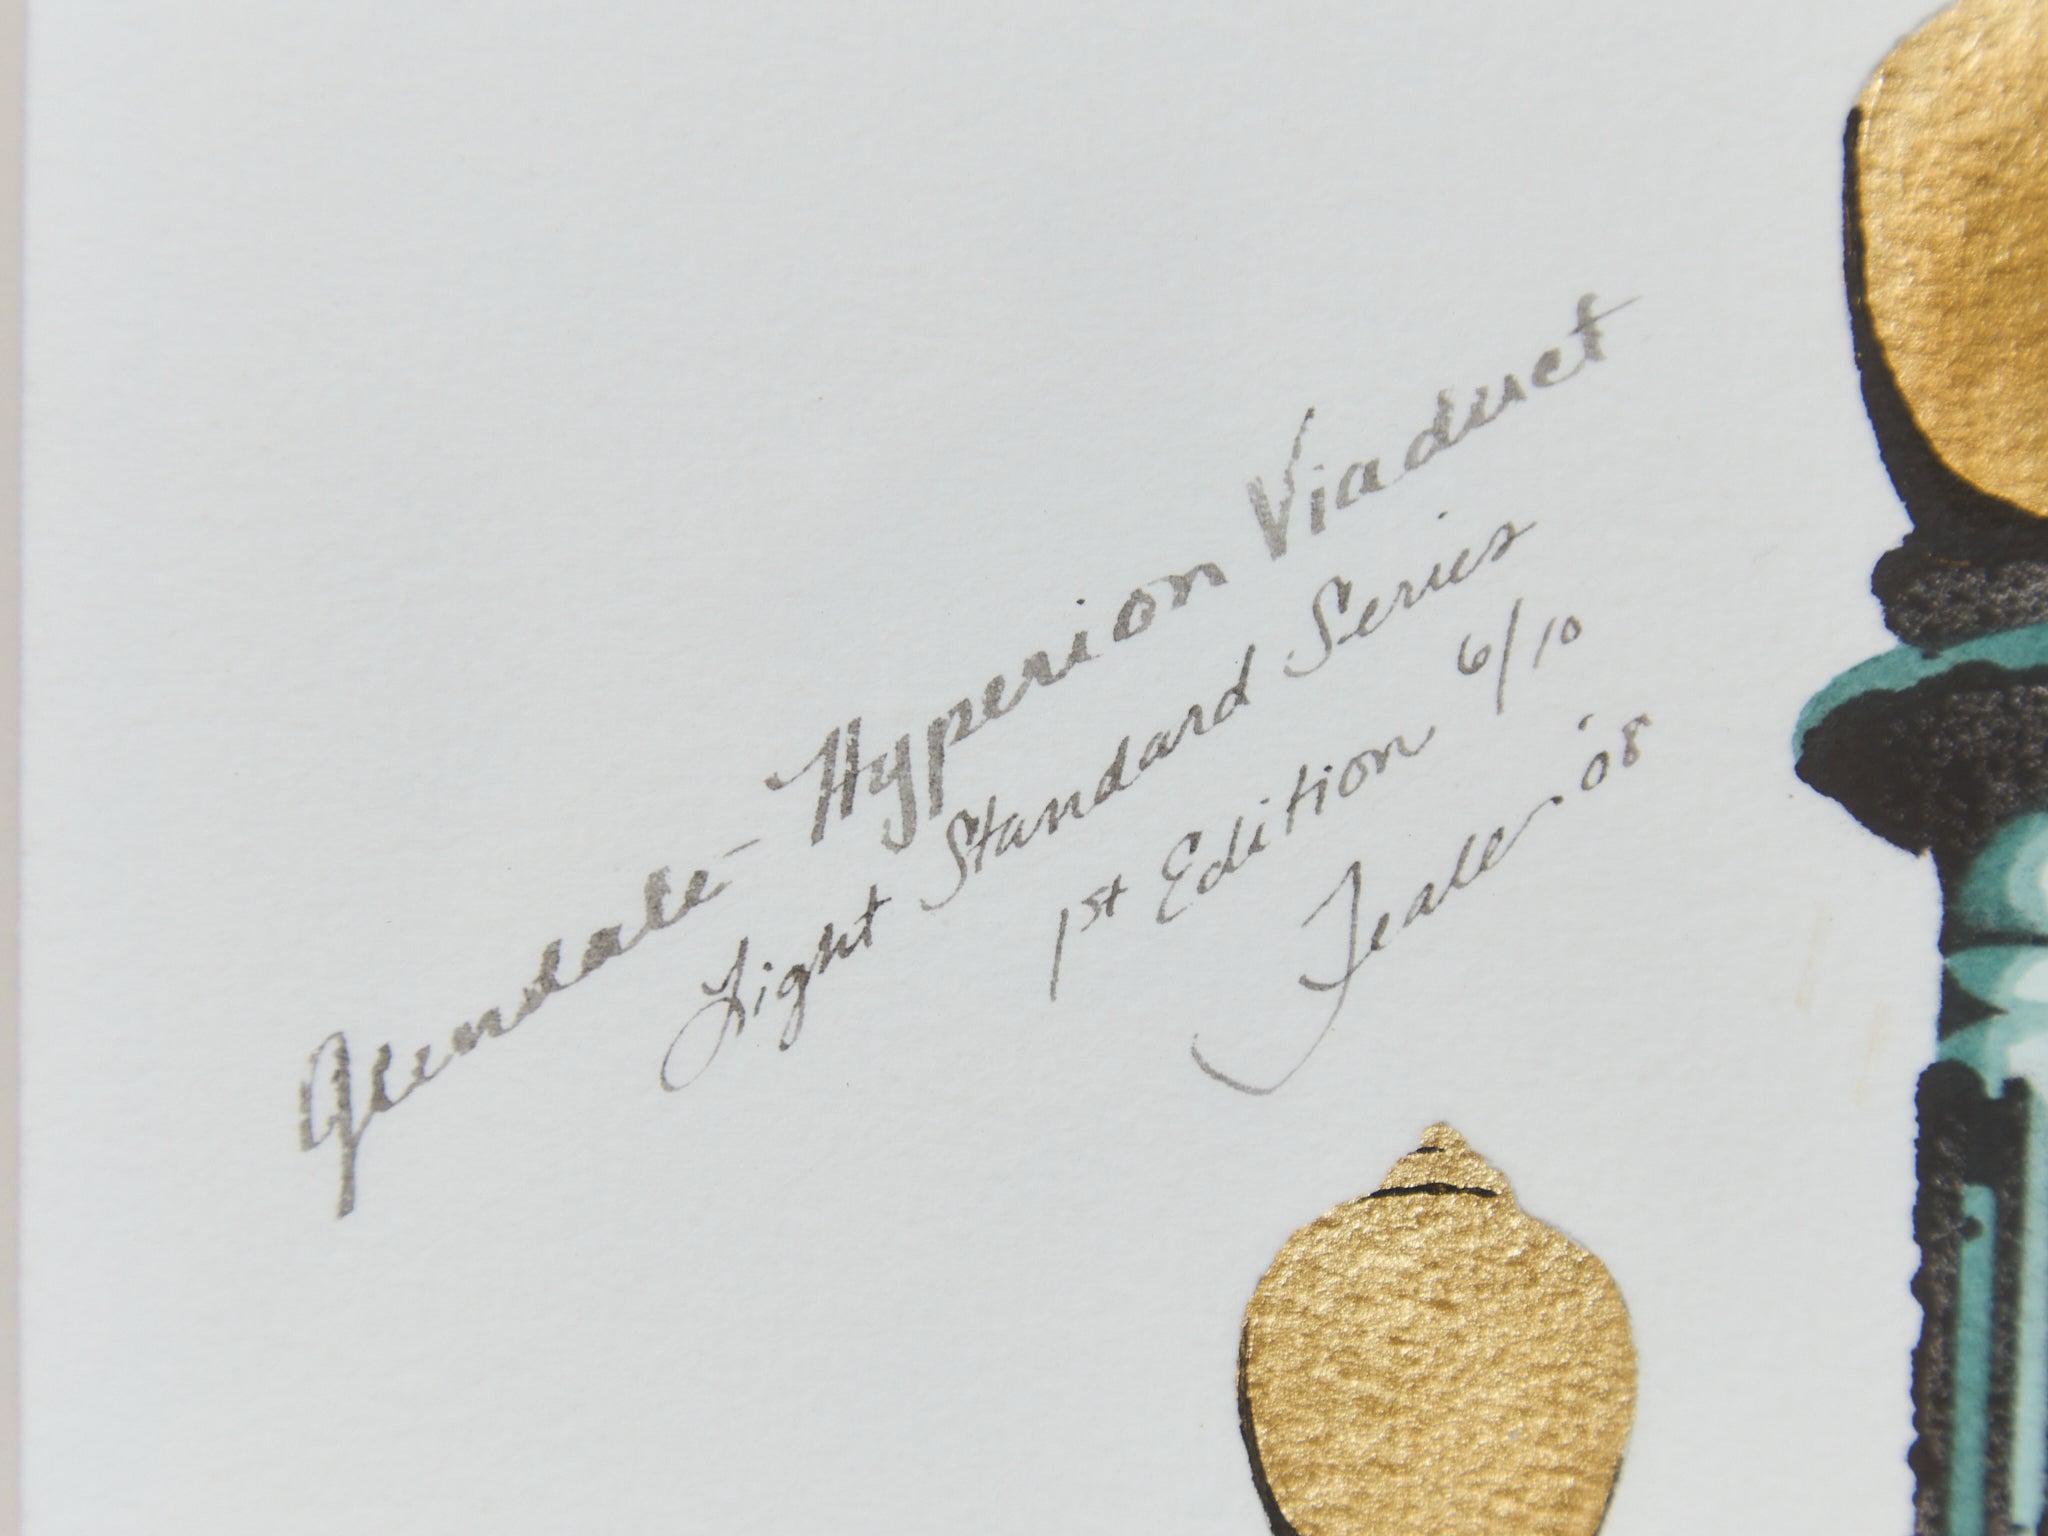 Glendale-Hyperion Viaduct
Light Standard Series
1st Edition 6/10
'08